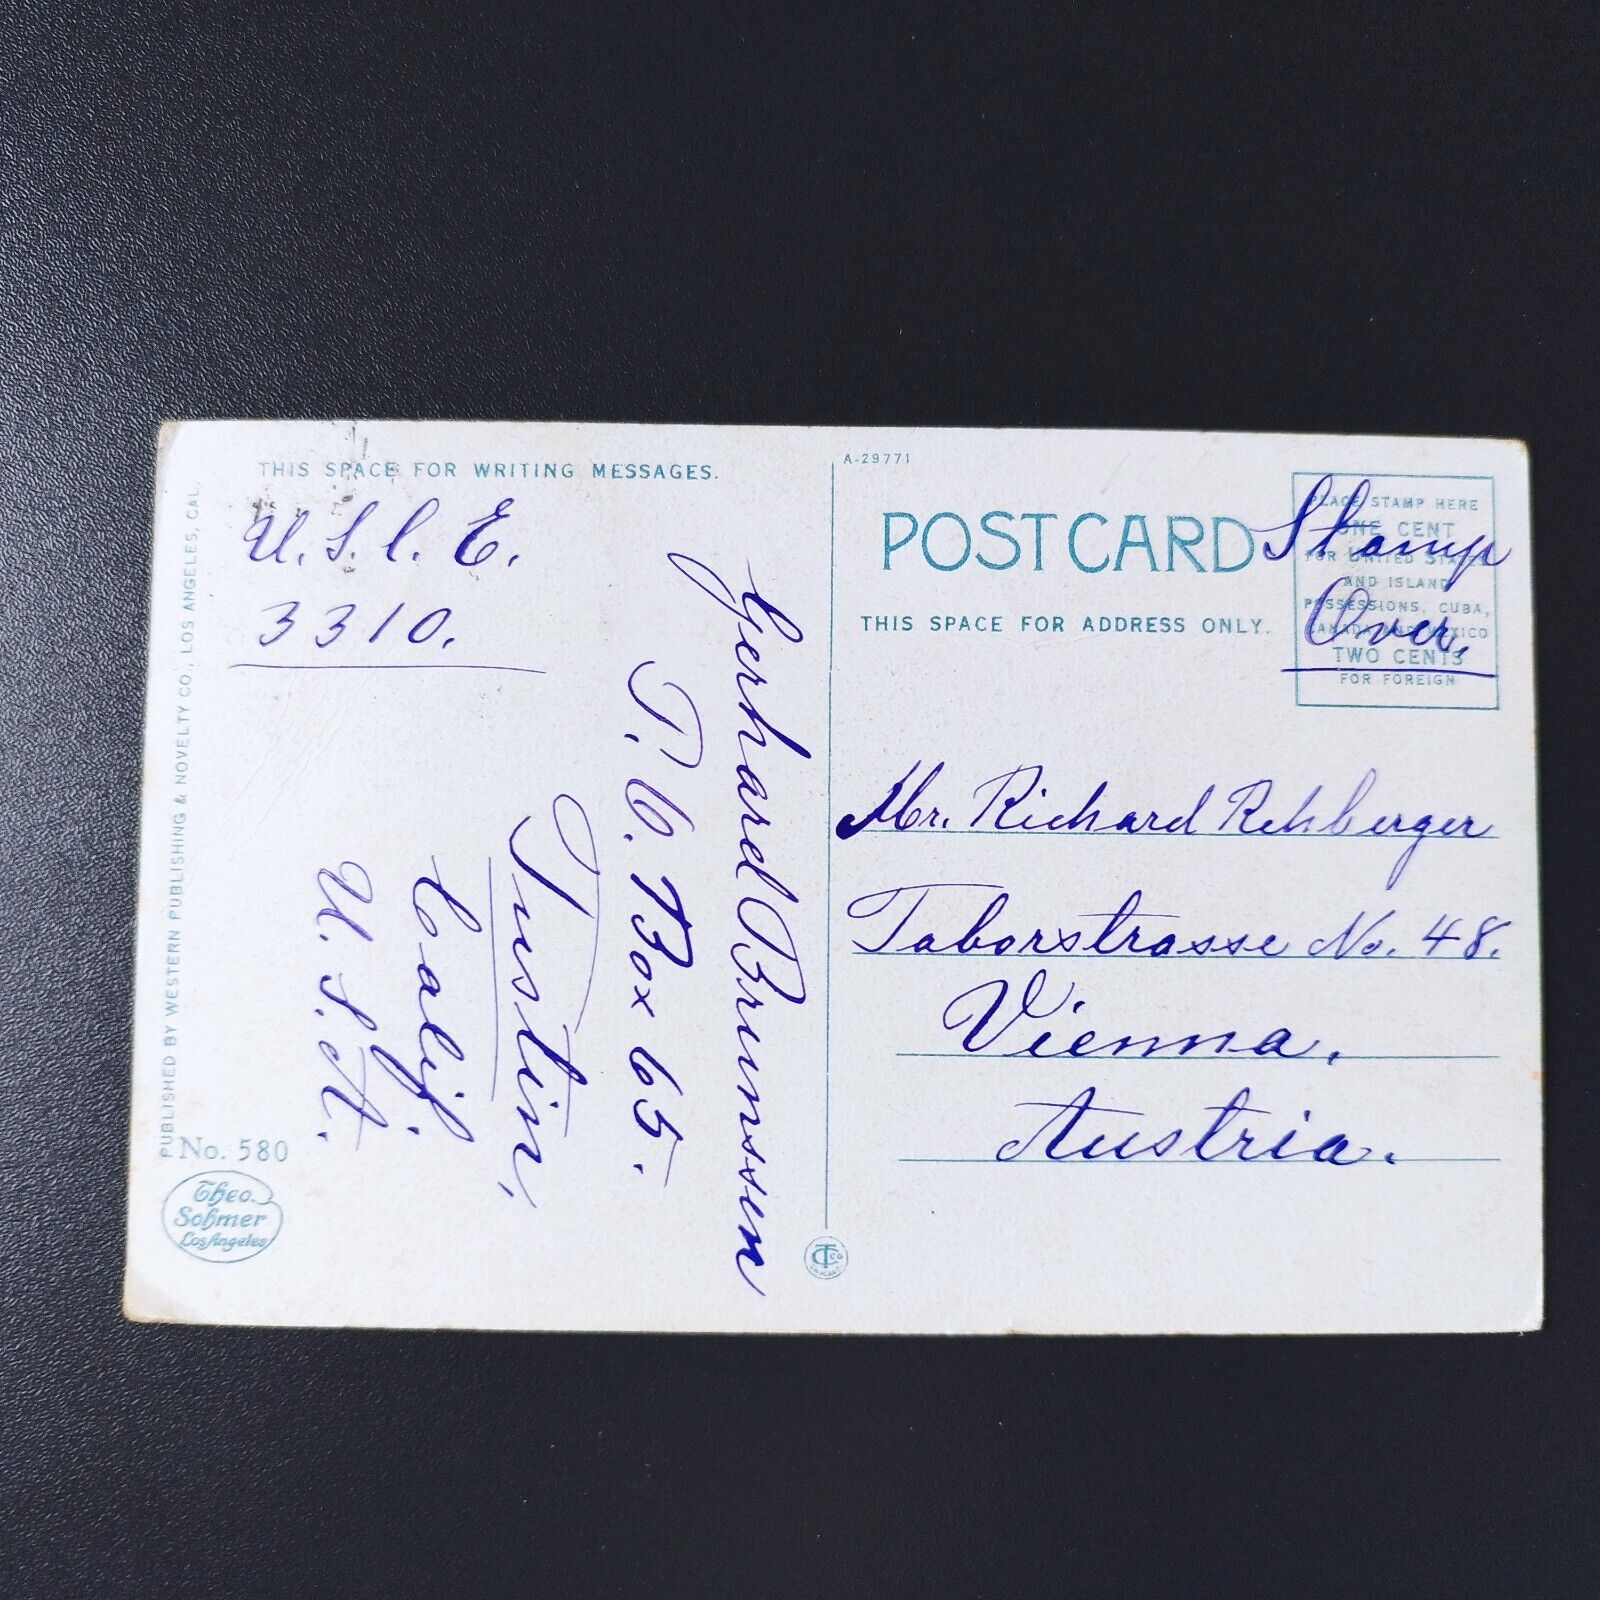 THIS SPACE FOR WRITING MESSAGES.
U. S. C. E.
3310.
Gerhard Brunssen
P. O. Box 65.
Tustin,
Calif.
U. S. A.
PUBLISHED BY WESTERN PUBLISHING & NOVELTY CO., LOS ANGELES, CAL.
No. 580
Theo.
Sohmer
Los Angeles
A-29771
POST CARD
THIS SPACE FOR ADDRESS ONLY.
PLACE STAMP HERE
ONE CENT
FOR UNITED STATES
AND ISLAND
POSSESSIONS, CUBA,
CANADA AND MEXICO
TWO CENTS
FOR FOREIGN
Stamp
Over.
Mr. Richard Rehberger
Taborstrasse No. 48.
Vienna.
Austria.